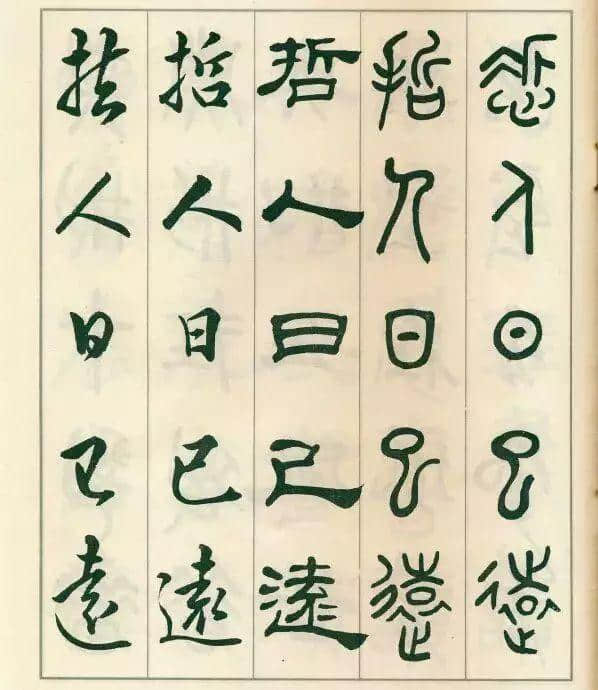 哲人日已遠
哲人日已遠
哲人日已遠
哲人日已遠
哲人日已遠